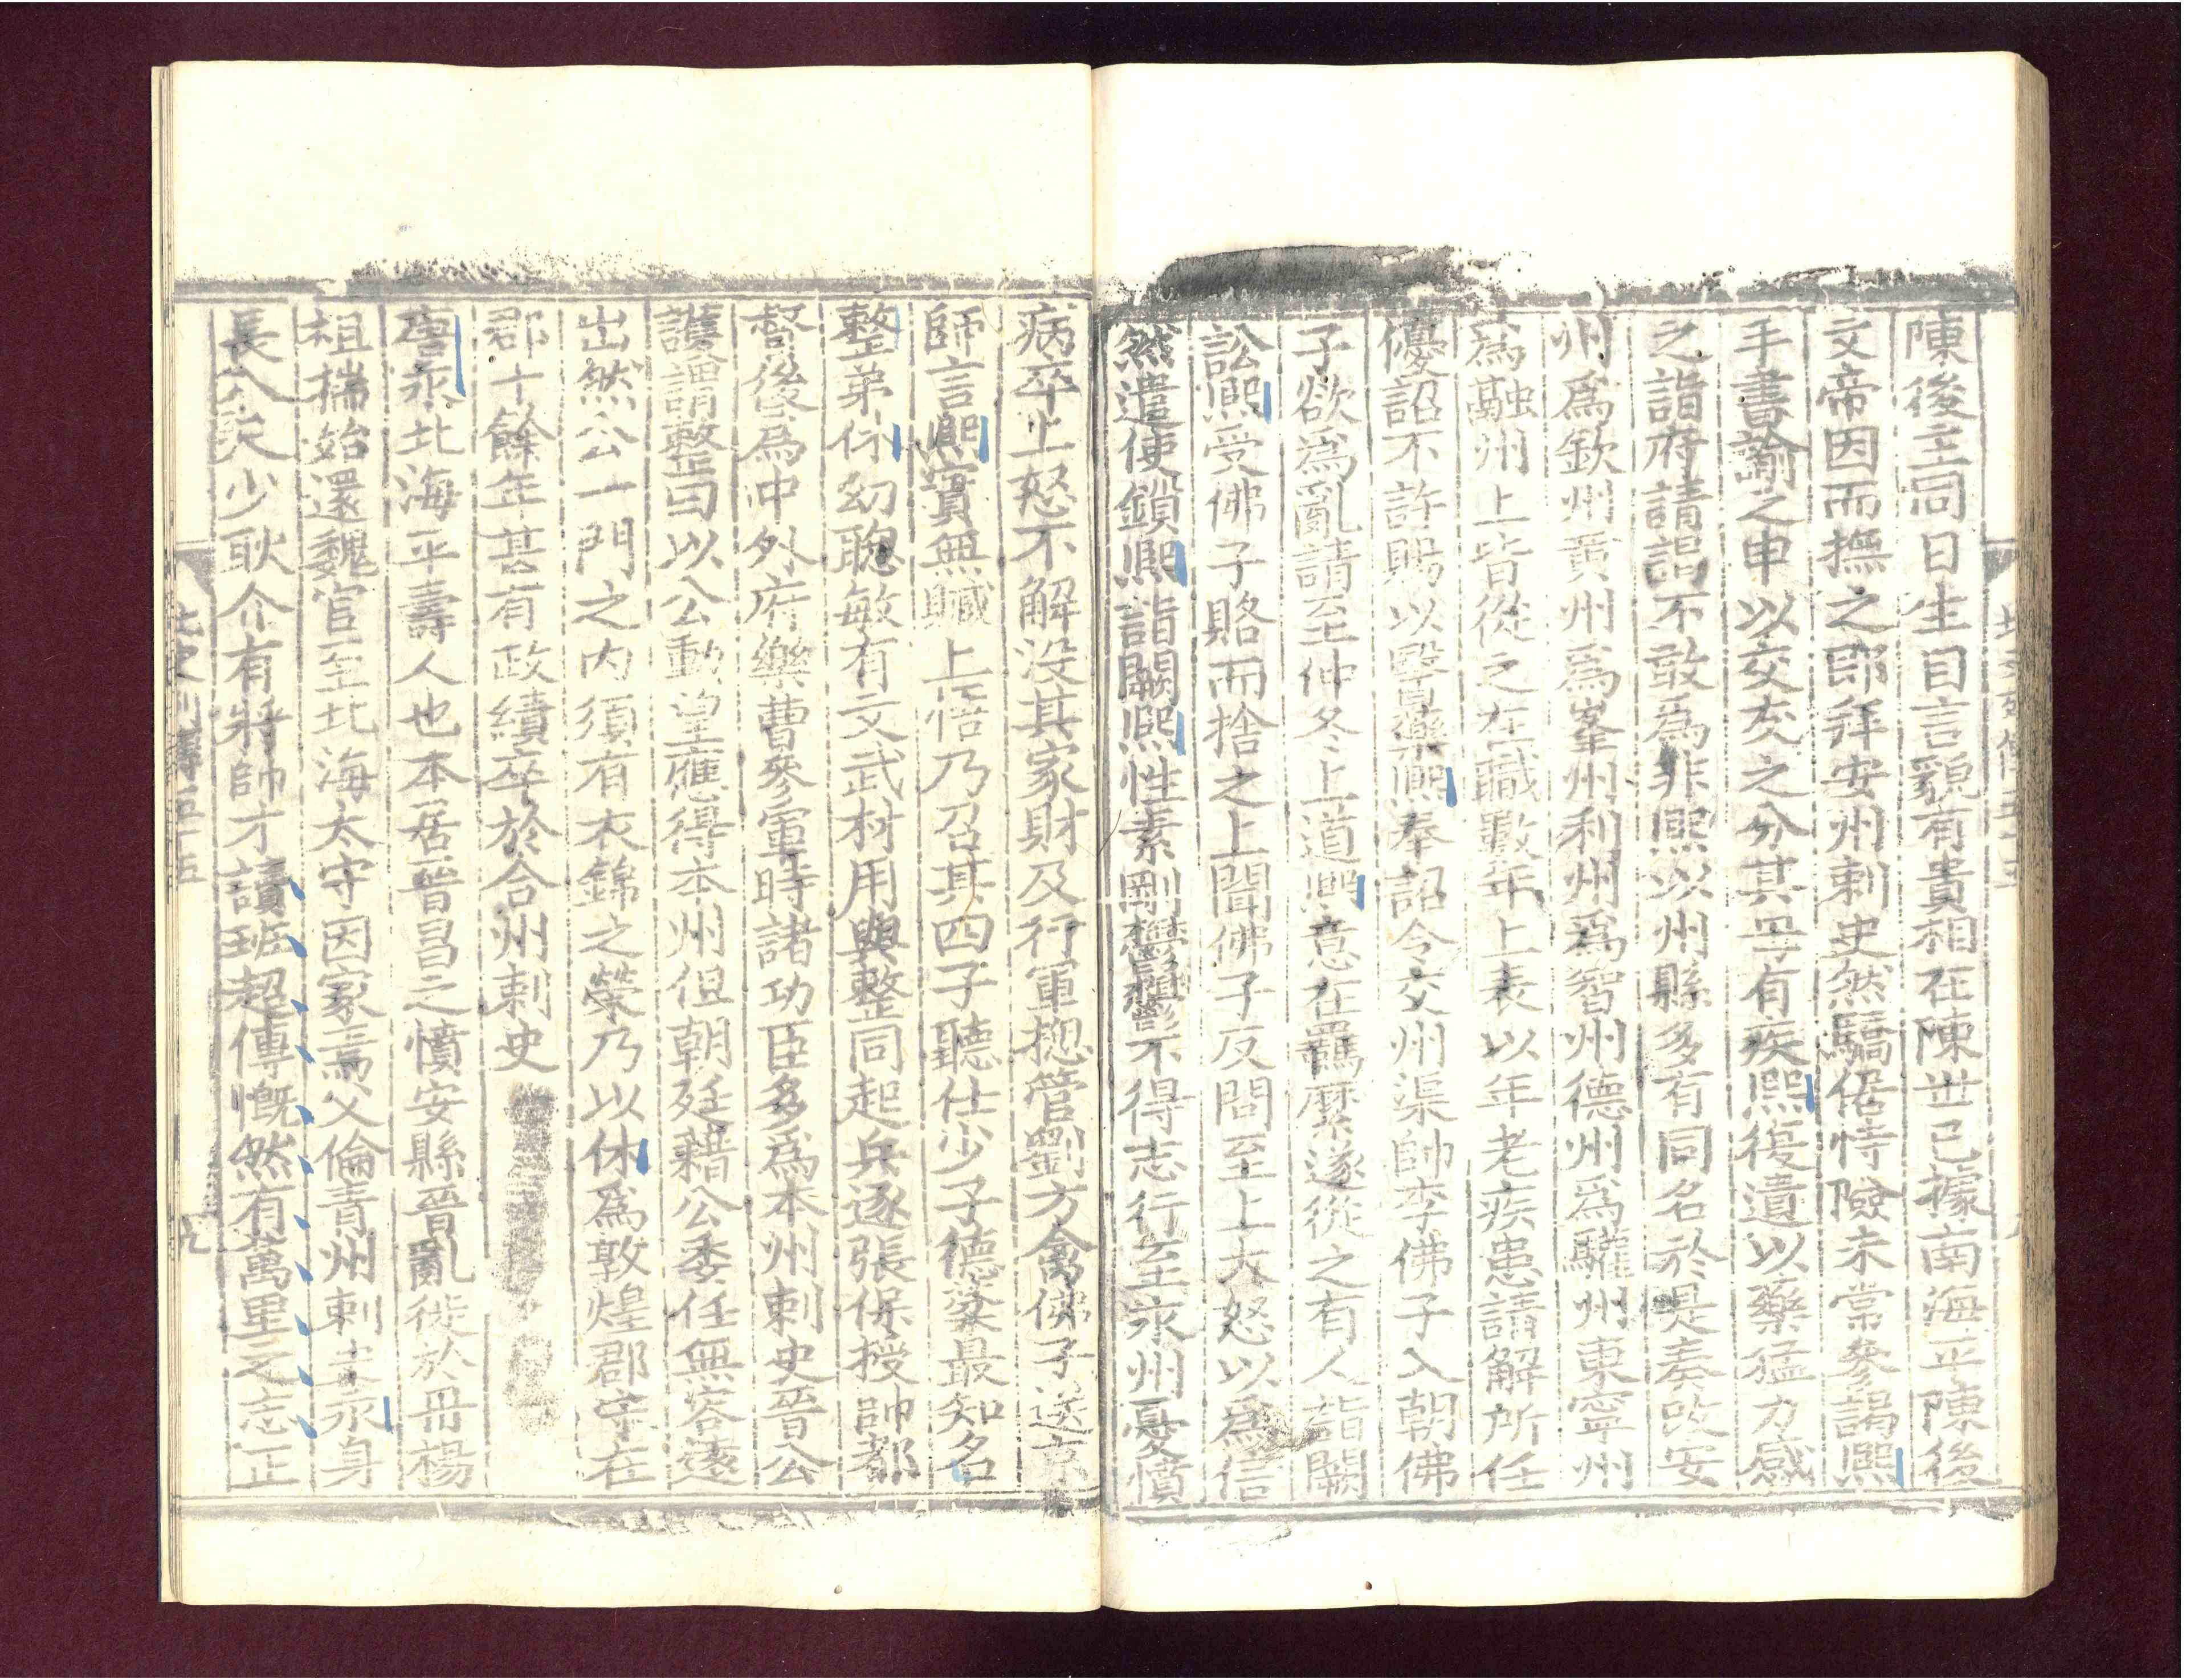 陳後主同日生自言貌有貴相在陳世已據南海平陳後
文帝因而撫之即拜安州刺史然驕倨恃險未常參謁熙
手書諭之申以交友之分其母有疾熙復遺以藥猛力感
之詣府請謁不敢爲非熙以州縣多有同名於是奏改安
州爲欽州黃州爲峯州利州爲智州德州爲驩州東寧州
爲融州上皆從之在職數年上表以年老疾患請解所任
優詔不許賜以醫藥熙奉詔令交州渠帥李佛子入朝佛
子欲爲亂請至仲冬上道熙意在羈縻遂從之有人詣闕
訟熙受佛子賂而捨之上聞佛子反問至上大怒以爲信
然遣使鎖熙詣闕熙性素剛鬱鬱不得志行至永州憂憤
病卒上怒不解没其家財及行軍揔管劉方禽佛子送京
師言熙實無贓上悟乃召其四子聽仕少子德棻最知名
整弟休幼聰敏有文武材用與整同起兵逐張保授帥都
督後爲中外府樂曹參軍時諸功臣多爲本州刺史晉公
護謂整曰以公勳望應得本州但朝廷藉公委任無容遠
出然公一門之內須有衣錦之榮乃以休爲敦煌郡守在
郡十餘年甚有政績卒於合州刺史
唐永北海平壽人也本居晉昌之憤安縣晉亂徙於丹楊
祖揣始還魏官至北海太守因家焉父倫青州刺史永身
長八尺少耿介有將帥才讀班超傳慨然有萬里之志正
北史列傳五十五